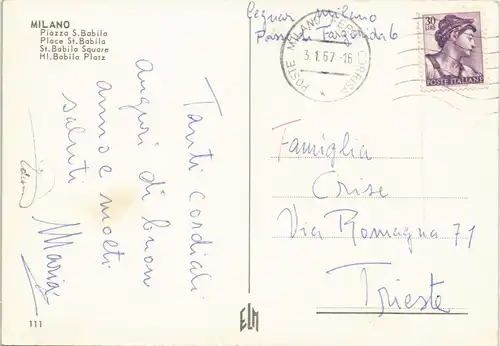 MILANO
Piazza S. Babila
Place St. Babila
St. Babila Square
Hl. Babila Platz
Milano
POSTE MILANO
3.1.67-16
30
LIRE
POSTE ITALIANE
Tanti cordiali
auguri di buon
anno e molti
saluti
Maria
Famiglia
Crise
Via Romagna 71
Trieste
111
ELM